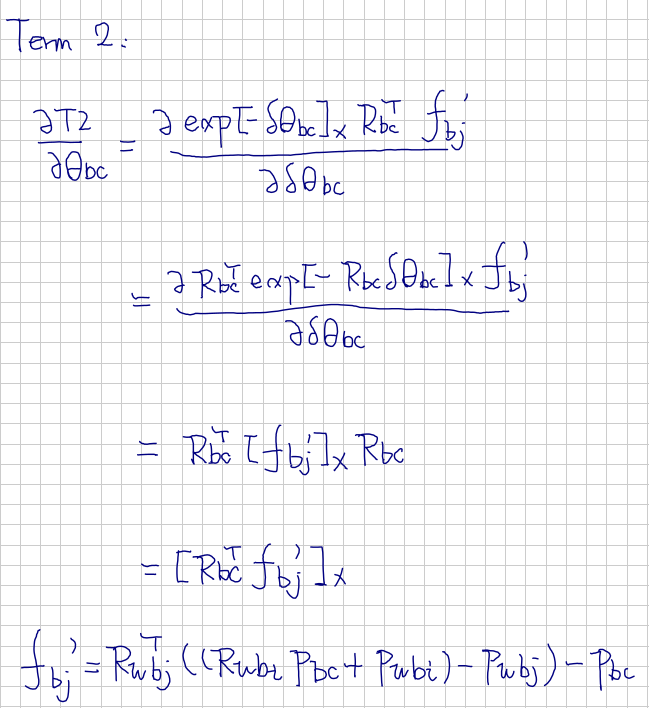 Term 2:
∂T2/∂θbc = ∂ exp[-δθbc]× Rbc^T fbj' / ∂δθbc
= ∂ Rbc^T exp[- Rbc δθbc]× fbj' / ∂δθbc
= Rbc^T [fbj']× Rbc
= [Rbc^T fbj']×
fbj' = Rwbj^T ((Rwbi Pbc + Pwbi) - Pwbj) - Pbc